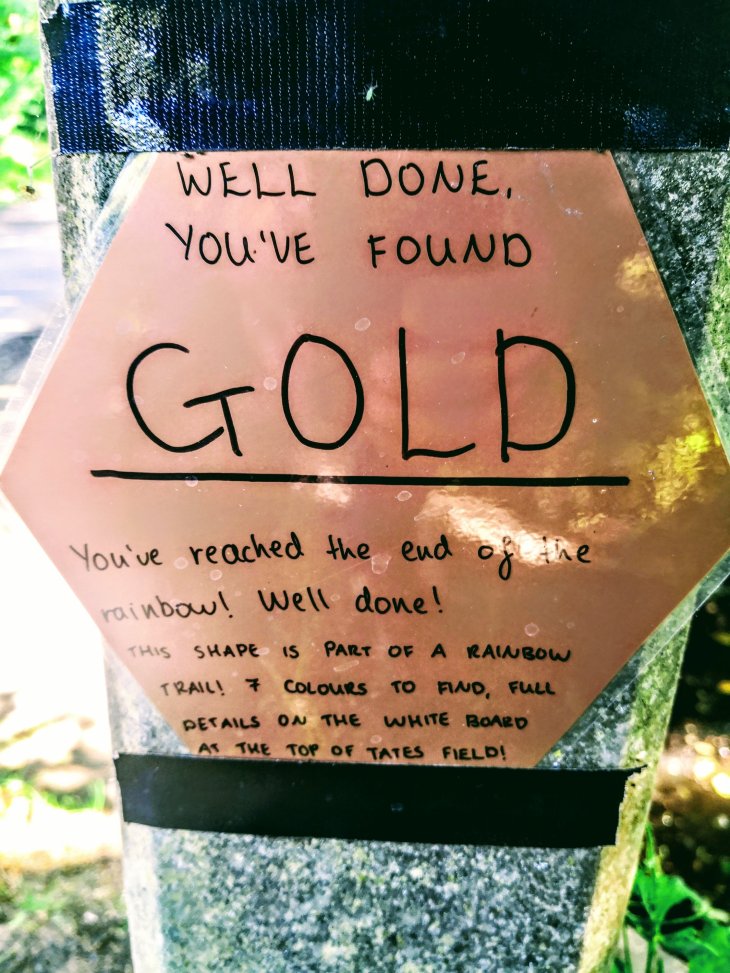 WELL DONE,
YOU'VE FOUND
GOLD
You've reached the end of the
rainbow! Well done!
THIS SHAPE IS PART OF A RAINBOW
TRAIL! 7 COLOURS TO FIND, FULL
DETAILS ON THE WHITE BOARD
AT THE TOP OF TATES FIELD!